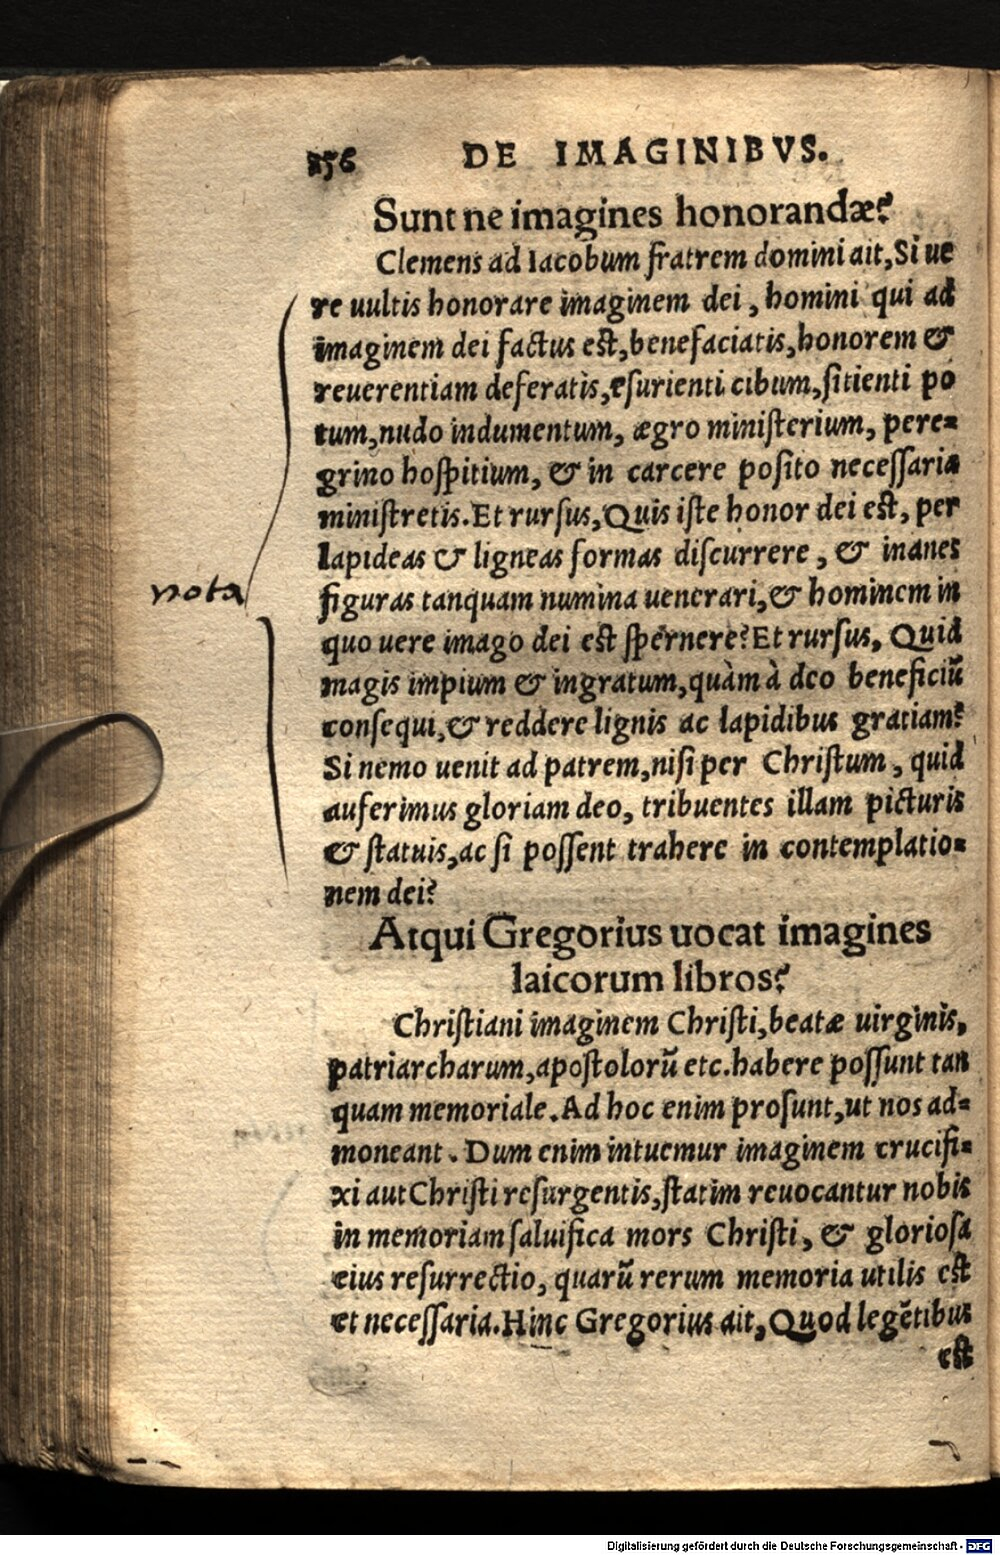 256 DE IMAGINIBVS.
Sunt ne imagines honorandæ?
Clemens ad Iacobum fratrem domini ait, Si ue
re uultis honorare imaginem dei, homini qui ad
imaginem dei factus est, benefaciatis, honorem &
reuerentiam deferatis, esurienti cibum, sitienti po
tum, nudo indumentum, ægro ministerium, pere=
grino hospitium, & in carcere posito necessaria
ministretis. Et rursus, Quis iste honor dei est, per
lapideas & ligneas formas discurrere, & inanes
figuras tanquam numina uenerari, & hominem in
quo uere imago dei est spernere? Et rursus, Quid
magis impium & ingratum, quàm à deo beneficiũ
consequi, & reddere lignis ac lapidibus gratiam?
Si nemo uenit ad patrem, nisi per Christum, quid
auferimus gloriam deo, tribuentes illam picturis
& statuis, ac si possent trahere in contemplatio=
nem dei?
nota
Atqui Gregorius uocat imagines
laicorum libros?
Christiani imaginem Christi, beatæ uirginis,
patriarcharum, apostolorũ etc. habere possunt tan
quam memoriale. Ad hoc enim prosunt, ut nos ad=
moneant. Dum enim intuemur imaginem crucifi=
xi aut Christi resurgentis, statim reuocantur nobis
in memoriam saluifica mors Christi, & gloriosa
eius resurrectio, quarũ rerum memoria utilis est
et necessaria. Hinc Gregorius ait, Quod legẽtibus
est
Digitalisierung gefördert durch die Deutsche Forschungsgemeinschaft - DFG